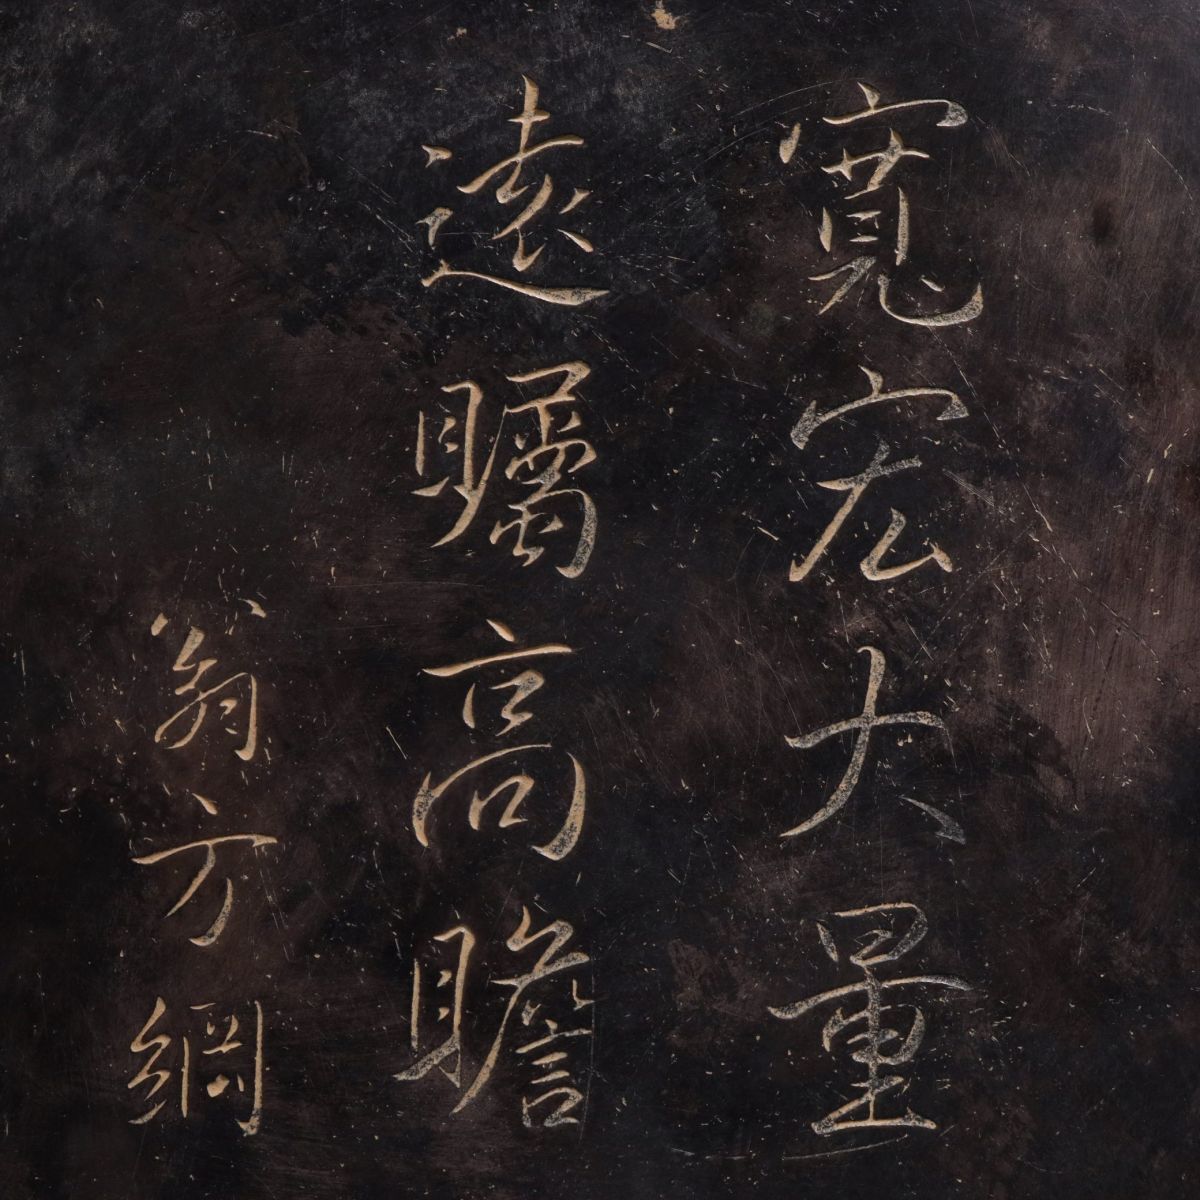 寬宏大量
遠矚高瞻
翁方綱